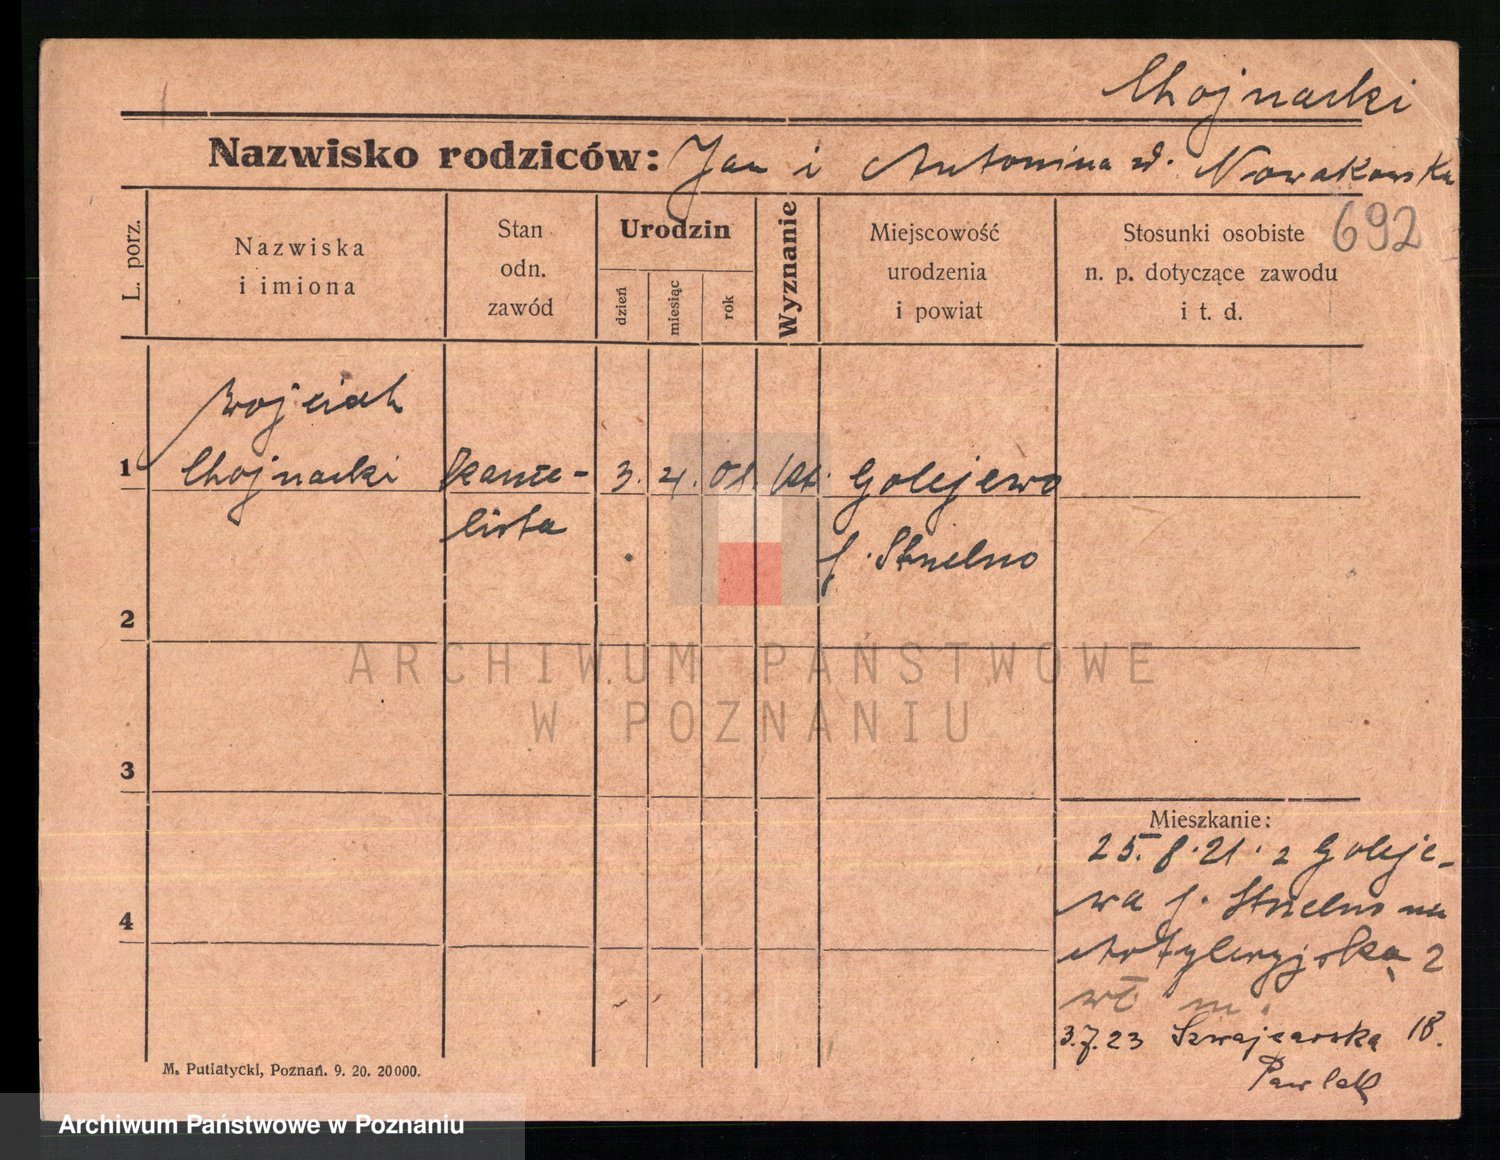 Chojnacki
Nazwisko rodziców: Jan i Antonina z d. Nowakowska
692
L. porz.
Nazwiska
i imiona
Stan
odn.
zawód
Urodzin
dzień
miesiąc
rok
Wyznanie
Miejscowość
urodzenia
i powiat
Stosunki osobiste
n. p. dotyczące zawodu
i t. d.
Wojciech
1 Chojnacki kance- 3. 4. 01. kt. Golejewo
lista
p. Strzelno
2
3
4
Mieszkanie:
25.8.21. z Goleje-
wa p. Strzelno na
Artyleryjską 2
wł. m.
3.7.23 Szwajcarska 18.
Pawlak
M. Putiatycki, Poznań. 9. 20. 20000.
ARCHIWUM PAŃSTWOWE
W POZNANIU
Archiwum Państwowe w Poznaniu